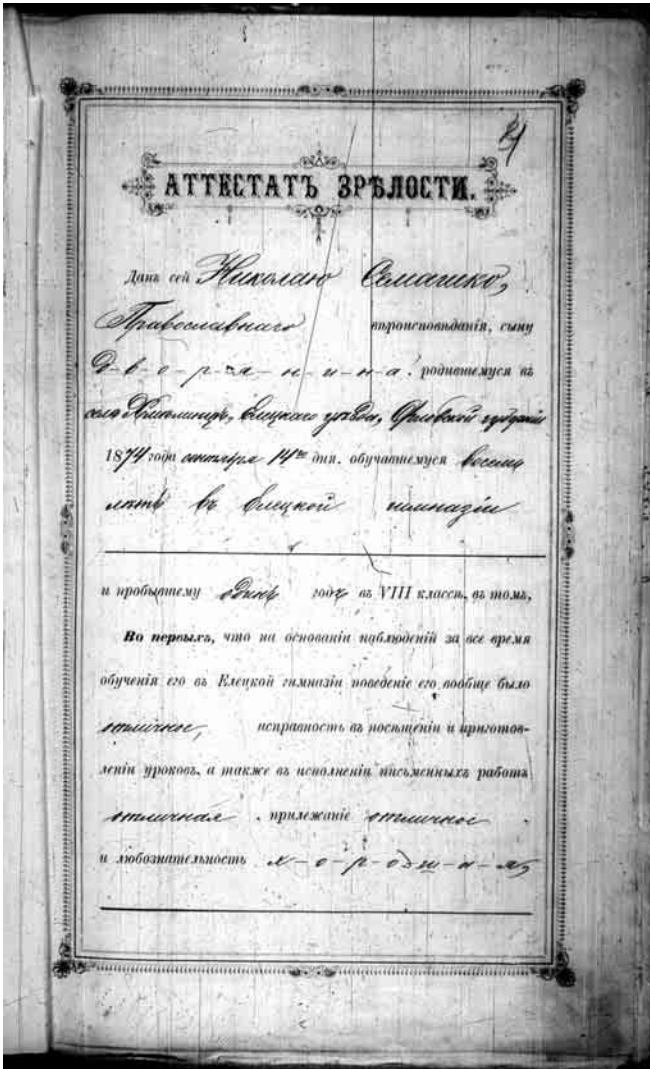 21
АТТЕСТАТЪ ЗРѢЛОСТИ.
Данъ сей Николаю Семашко,
Православнаго вѣроисповѣданія, сыну
д-в-о-р-я-н-и-н-а, родившемуся въ
селѣ Елецкаго уѣзда, Орловской губерніи
1874 года сентября 14го дня, обучавшемуся восемь
лѣтъ въ Елецкой гимназіи
и пробывшему одинъ годъ въ VIII классѣ, въ томъ,
Во первыхъ, что на основаніи наблюденій за все время
обученія его въ Елецкой гимназіи поведеніе его вообще было
отличное, исправность въ посѣщеніи и приготов-
леніи уроковъ, а также въ исполненіи письменныхъ работъ
отличная, прилежаніе отличное
и любознательность х-о-р-о-ш-а-я,